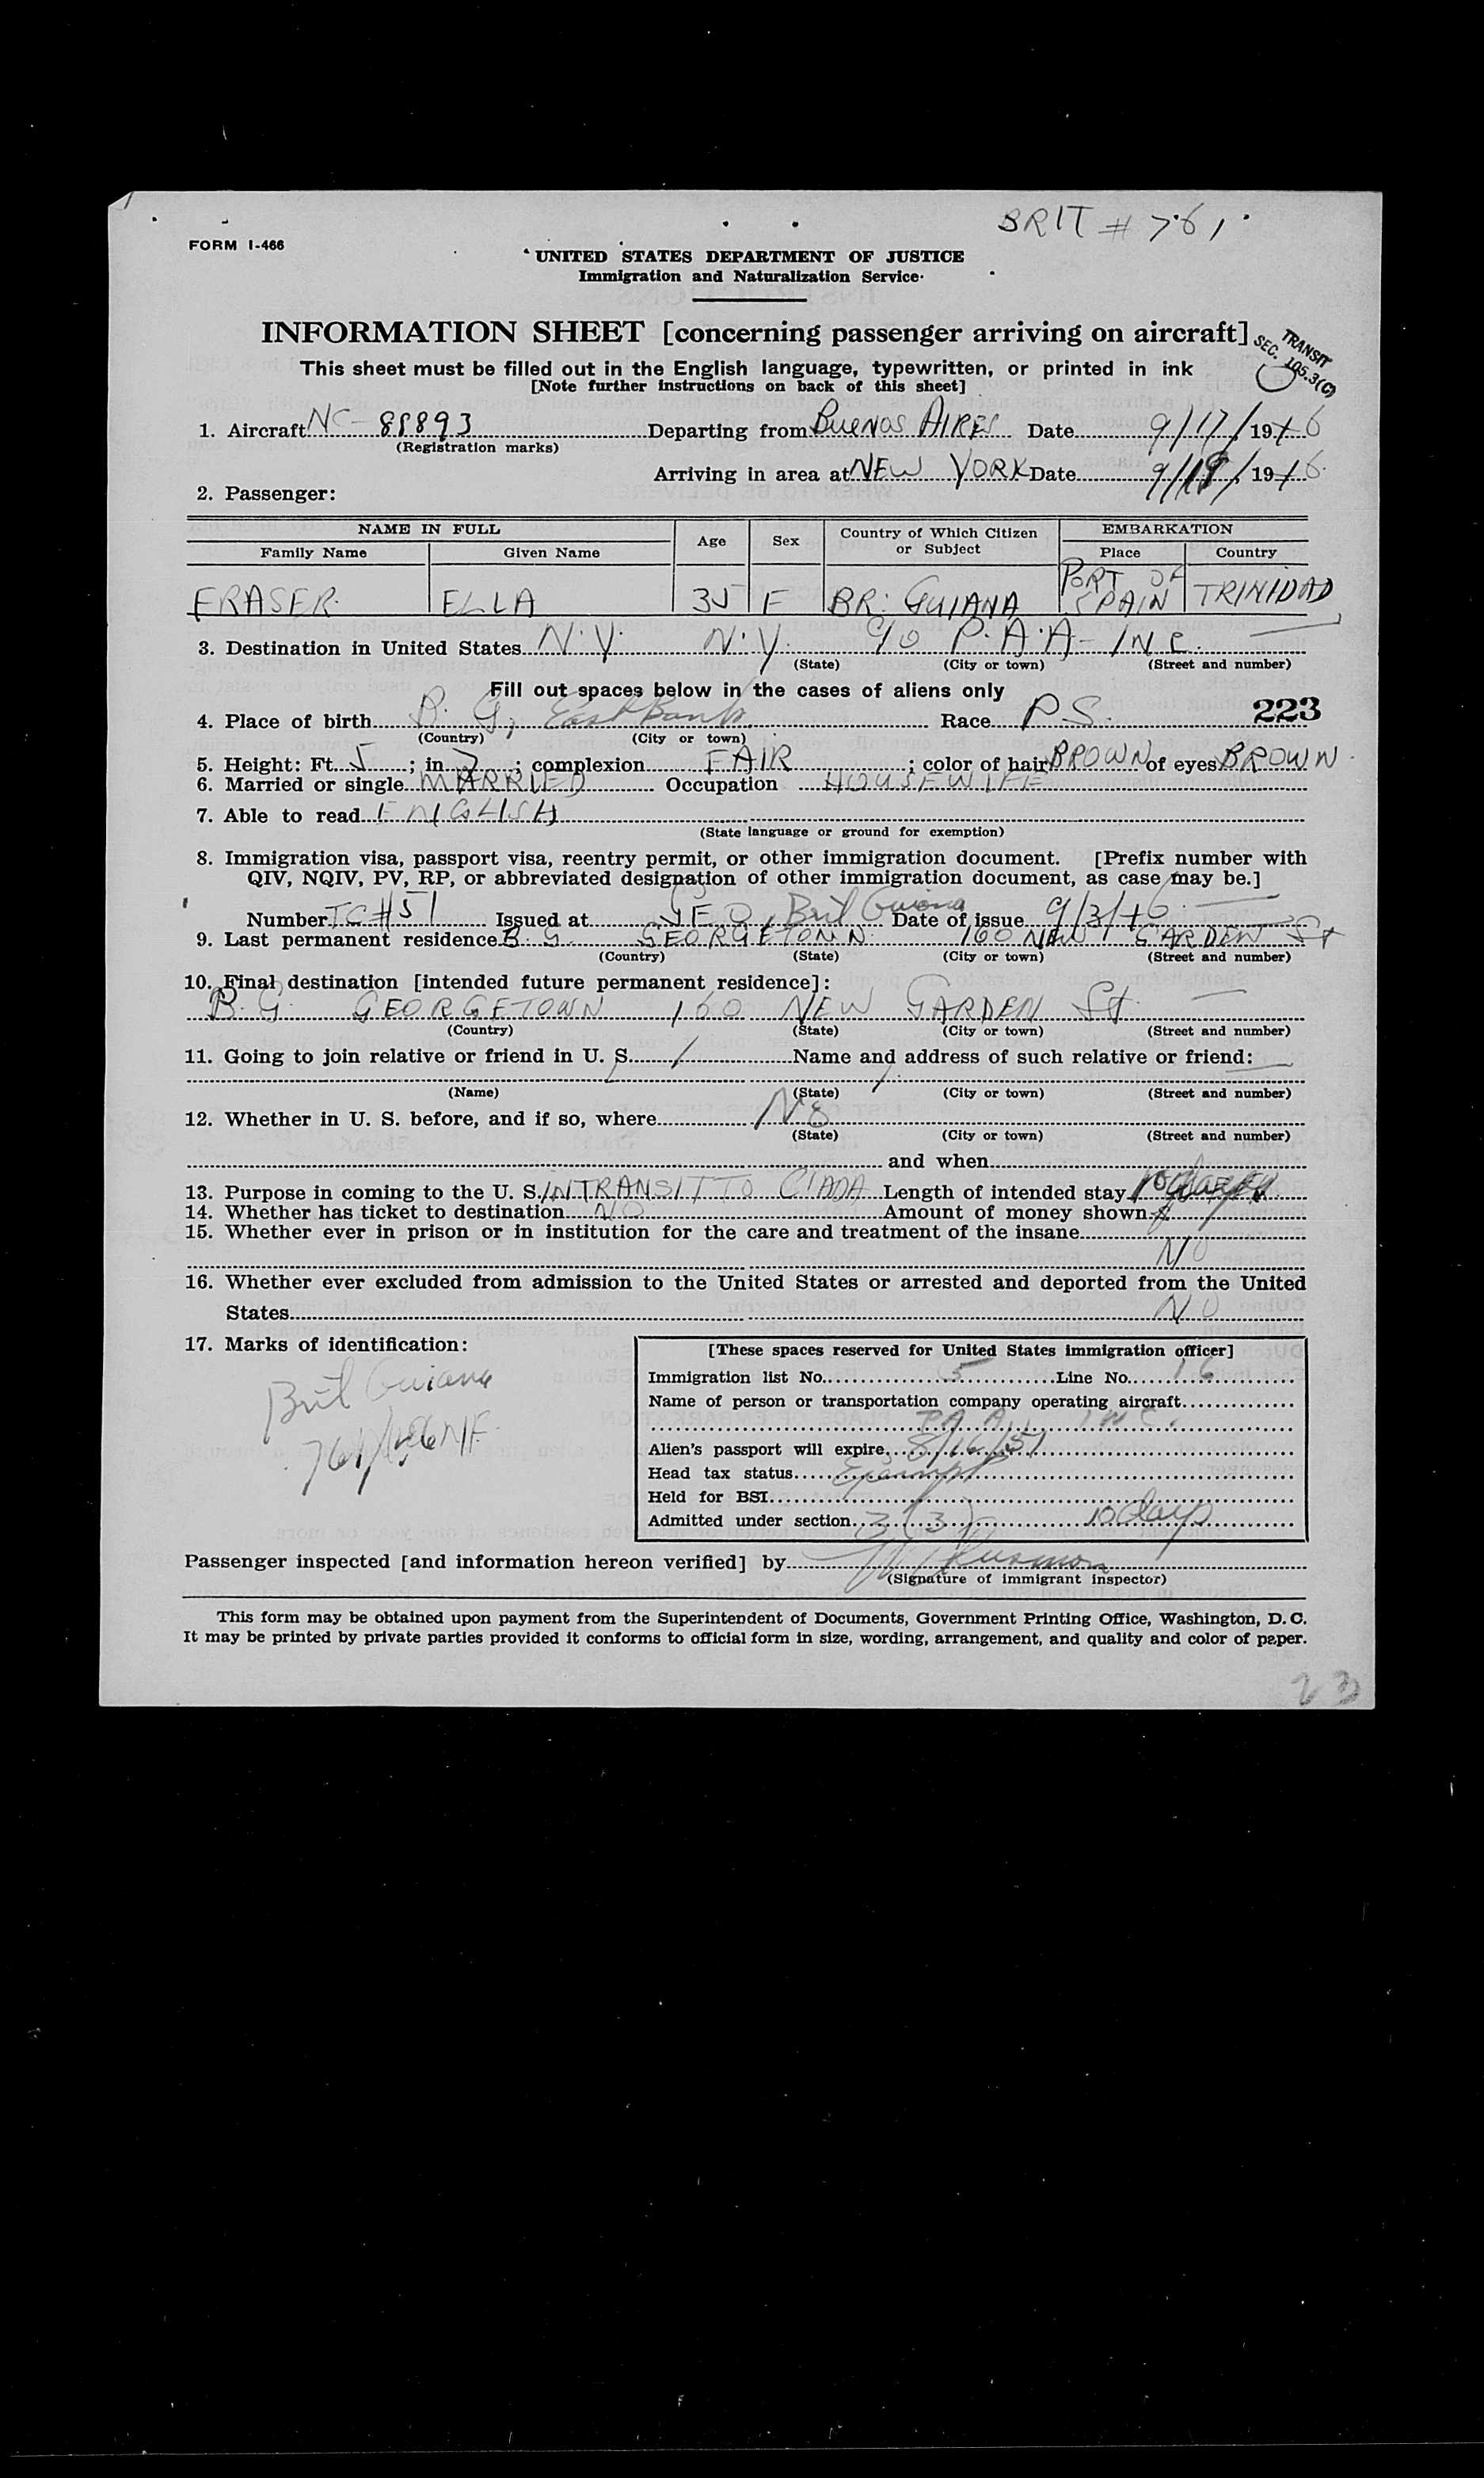 BRIT # 761
FORM I-466
UNITED STATES DEPARTMENT OF JUSTICE
Immigration and Naturalization Service
INFORMATION SHEET [concerning passenger arriving on aircraft]
TRANSIT
SEC. 105.3(G)
This sheet must be filled out in the English language, typewritten, or printed in ink
[Note further instructions on back of this sheet]
1. Aircraft NC-88893 Departing from BUENOS AIRES Date 9/17/1946
(Registration marks)
Arriving in area at NEW YORK Date 9/18/1946
2. Passenger:
NAME IN FULL Age Sex Country of Which Citizen or Subject EMBARKATION
Family Name Given Name Place Country
FRASER ELLA 35 F BR: GUIANA PORT OF SPAIN TRINIDAD
3. Destination in United States N.Y. N.Y. c/o P.A.A- INC.
(State) (City or town) (Street and number)
Fill out spaces below in the cases of aliens only
4. Place of birth B. G, East Bank Race P.S. 223
(Country) (City or town)
5. Height: Ft. 5; in 7; complexion FAIR; color of hair BROWN of eyes BROWN
6. Married or single MARRIED Occupation HOUSEWIFE
7. Able to read ENGLISH
(State language or ground for exemption)
8. Immigration visa, passport visa, reentry permit, or other immigration document. [Prefix number with
QIV, NQIV, PV, RP, or abbreviated designation of other immigration document, as case may be.]
Number TC#51 Issued at GEO, Brit Guiana Date of issue 9/3/46
9. Last permanent residence B. G. GEORGETOWN 160 NEW GARDEN St
(Country) (State) (City or town) (Street and number)
10. Final destination [intended future permanent residence]:
B.G. GEORGETOWN 160 NEW GARDEN St.
(Country) (State) (City or town) (Street and number)
11. Going to join relative or friend in U. S. Name and address of such relative or friend:
(Name) (State) (City or town) (Street and number)
12. Whether in U. S. before, and if so, where No
(State) (City or town) (Street and number)
and when
13. Purpose in coming to the U. S. INTRANSIT TO C'ADA Length of intended stay
14. Whether has ticket to destination NO Amount of money shown $
15. Whether ever in prison or in institution for the care and treatment of the insane
NO
16. Whether ever excluded from admission to the United States or arrested and deported from the United
States NO
17. Marks of identification:
Brit Guiana
761
[These spaces reserved for United States immigration officer]
Immigration list No. 5 Line No. 16
Name of person or transportation company operating aircraft
P.A.A., INC.
Alien's passport will expire 8/16/51
Head tax status Exempt
Held for BSI
Admitted under section 3(3) 10 days
Passenger inspected [and information hereon verified] by
(Signature of immigrant inspector)
This form may be obtained upon payment from the Superintendent of Documents, Government Printing Office, Washington, D. C.
It may be printed by private parties provided it conforms to official form in size, wording, arrangement, and quality and color of paper.
23